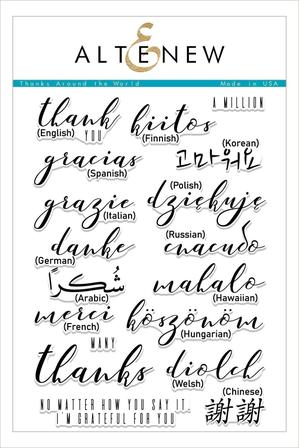 ALTENEW
Thanks Around the World
Made in USA
A MILLION
thank
(English)
YOU
kiitos
(Finnish)
gracias
(Spanish)
고마워요
(Korean)
grazie
(Italian)
dziękuję
(Polish)
danke
(German)
спасибо
(Russian)
شُكراً
(Arabic)
mahalo
(Hawaiian)
merci
(French)
köszönöm
(Hungarian)
MANY
thanks
diolch
(Welsh)
NO MATTER HOW YOU SAY IT,
I'M GRATEFUL FOR YOU
(Chinese)
謝謝